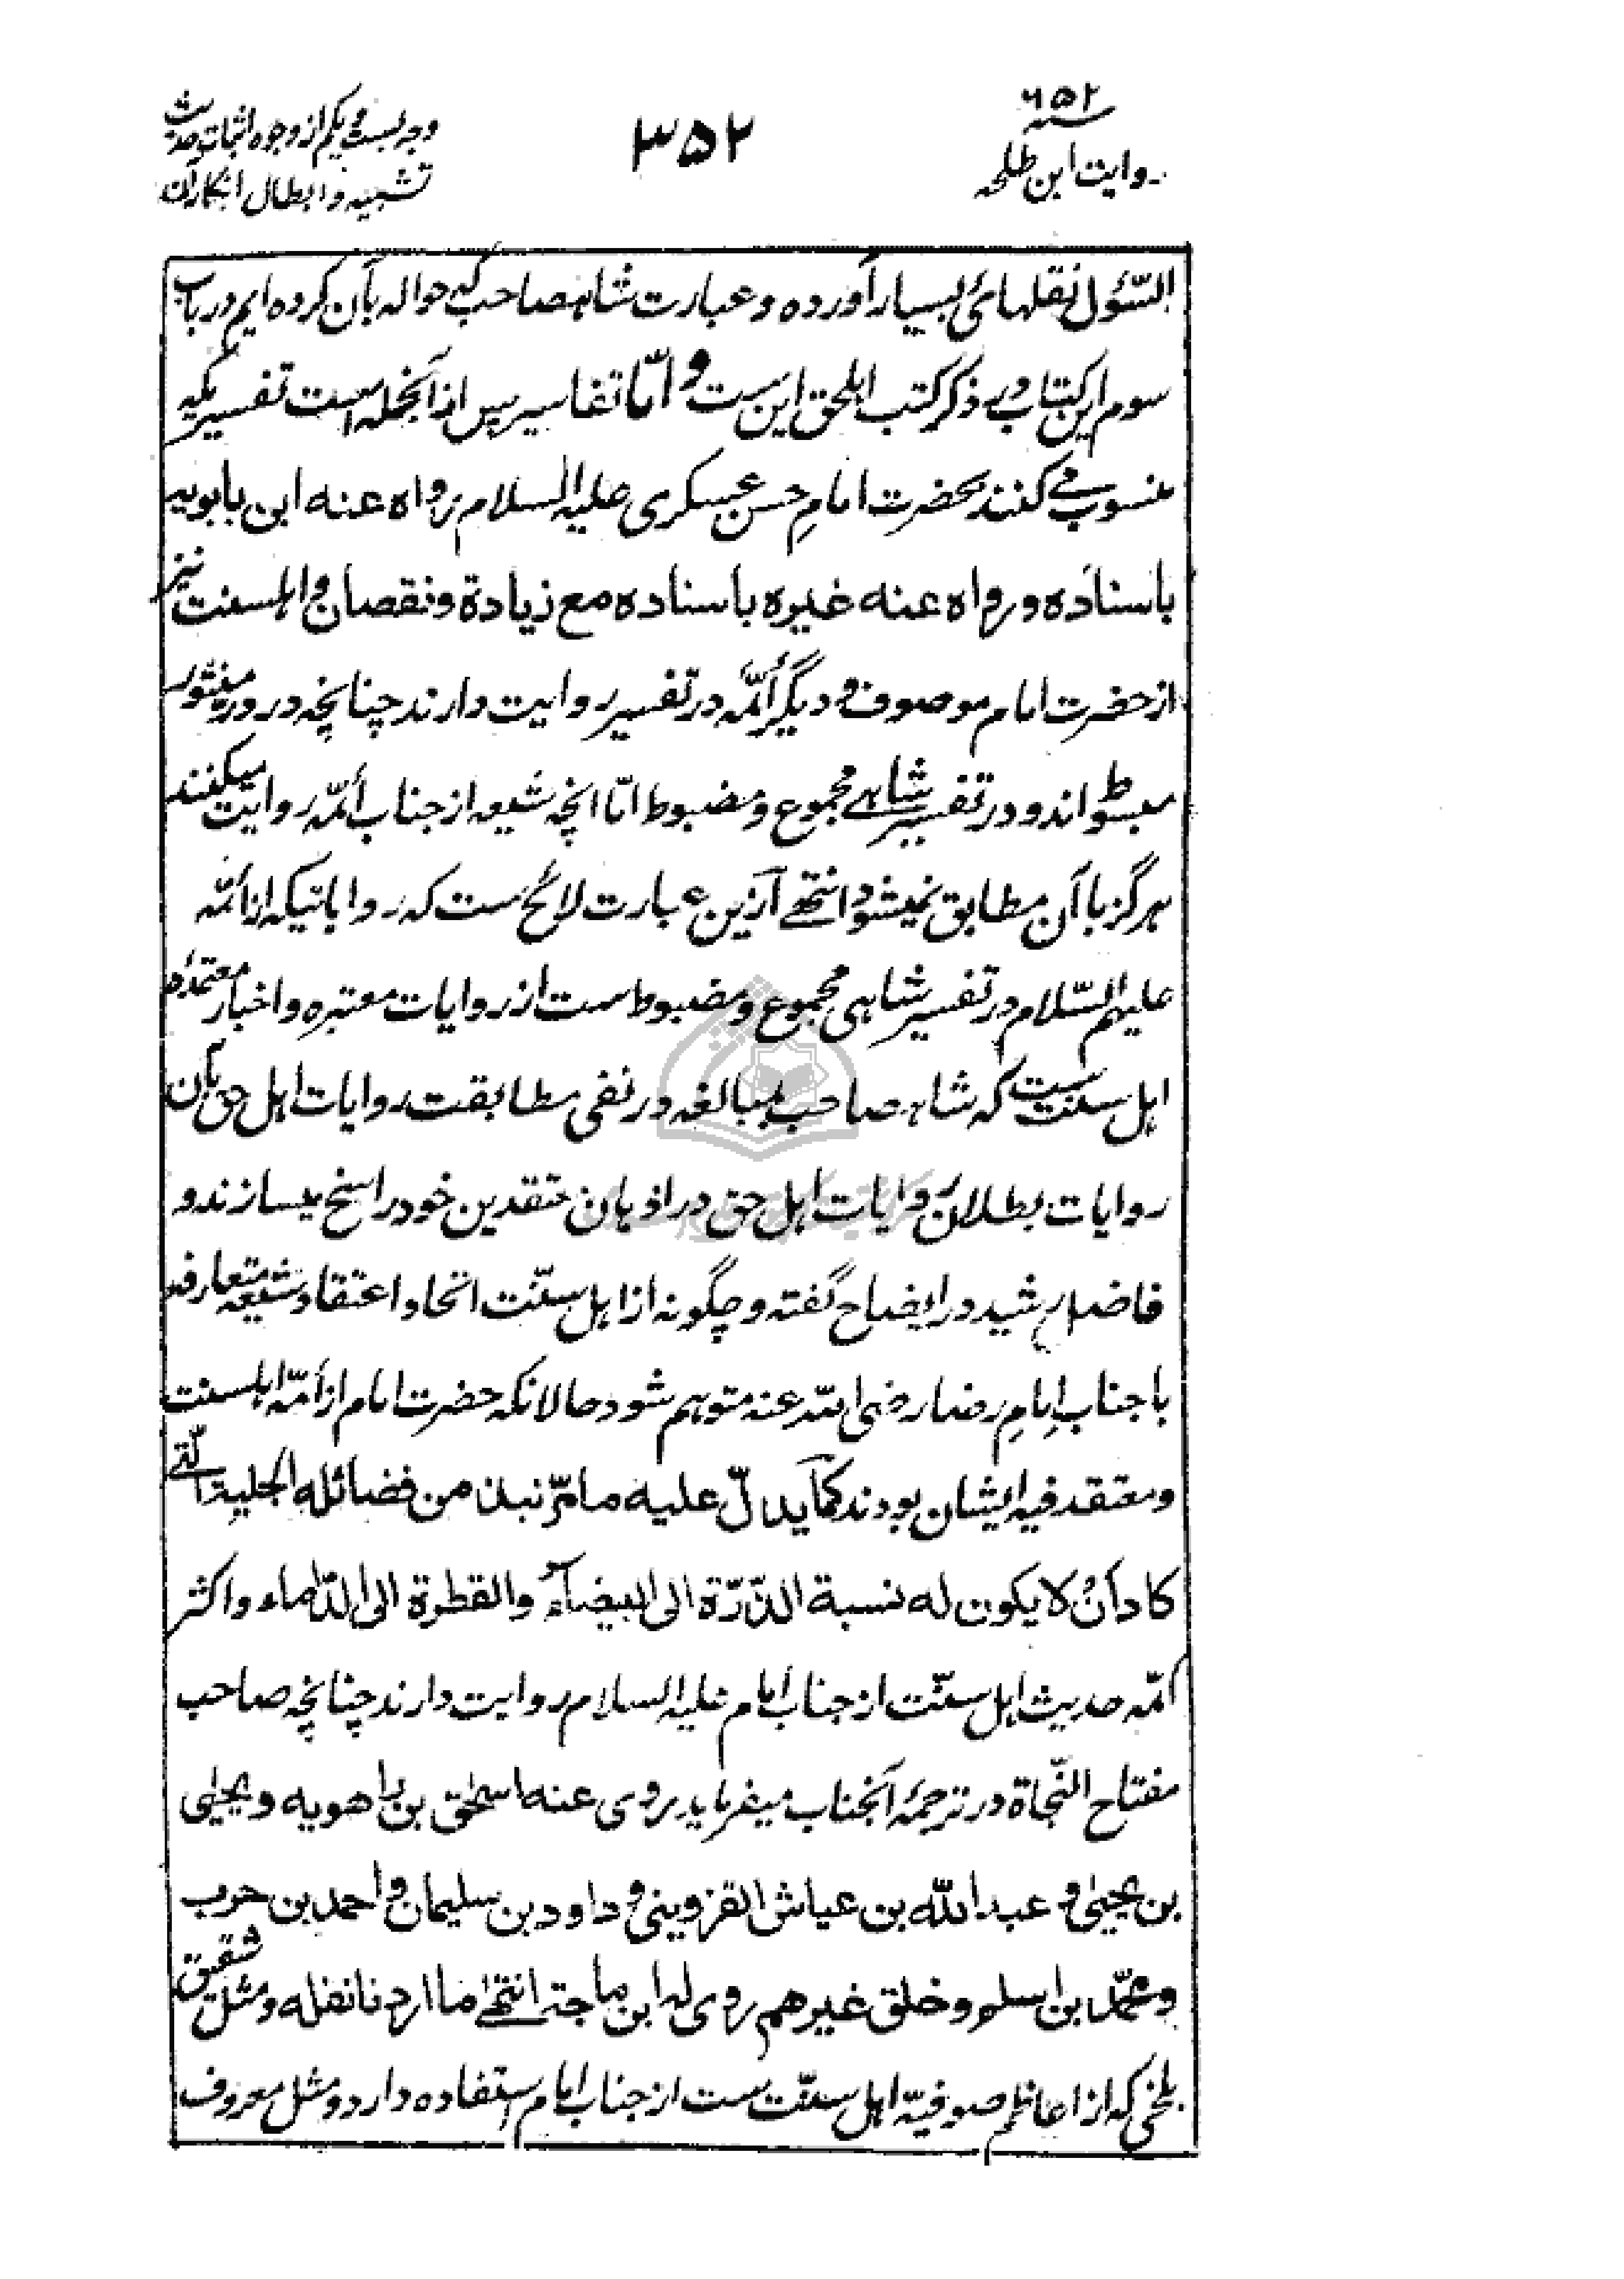 سنه ٦٥٢
روایت ابن طلحه
٣٥٢
وجه بست و یکم از وجوه اثبات حدیث
تشبیه و ابطال انکار آن
السّؤل نقلهای بسیار آورده و عبارت شاهصاحب که حواله بآن کرده ایم در باب
سوم این کتاب در ذکر کتب اهلحق این ست و امّا تفاسیر پس از آنجمله است تفسیریکه
منسوب می کنند بحضرت امامِ حسن عسکری علیه السلام رواه عنه ابن بابویه
باسناده و رواه عنه غیره باسناده مع زیادة و نقصان و اهلسنت نیز
از حضرت امام موصوف و دیگر أئمّه در تفسیر روایت دارند چنانچه در در منثور
مبسوط اند و در تفسیر شاهی مجموع و مضبوط امّا انچه شیعه از جناب أئمّه روایت میکنند
هرگز با آن مطابق نمیشود انتهی ازین عبارت لائح ست که روایاتیکه از أئمّه
علیهم السّلام در تفسیر شاهی مجموع و مضبوط ست از روایات معتبره و اخبار معتمده
اهل سنت ست که شاهصاحب بمبالغه در نفی مطابقت روایات اهل حق بآن
روایات بطلان روایات اهل حق در اذهان معتقدین خود راسخ میسازند و
فاضل رشید در ایضاح گفته و چگونه از اهل سنّت اتحاد اعتقاد شیعه متعارفه
با جناب امامِ رضا رضی الله عنه متوهم شود حالانکه حضرت امام از أئمّه اهلسنت
و معتقد فیه ایشان بودند کما یدلّ علیه ما مرّ نبذ من فضائله الجلیة الّتی
کاد أن لا یکون له نسبة الذّرّة الی البیضآء و القطرة الی الدّاماء و اکثر
ائمّه حدیث اهل سنّت از جناب امام علیه السلام روایت دارند چنانچه صاحب
مفتاح النّجاة در ترجمهٔ آنجناب میفرماید روی عنه اسحٰق بن راهویه و یحیٰی
بن یحیٰی و عبد الله بن عیاش القزوینی و داود بن سلیمان و احمد بن حرب
و محمّد بن اسلم و خلق غیرهم روی له ابن ماجة انتهٰی ما اردنا نقله و مثل شقیق
بلخی که از اعاظم صوفیّه اهل سنّت ست از جناب امام استفاده دارد و مثل معروف